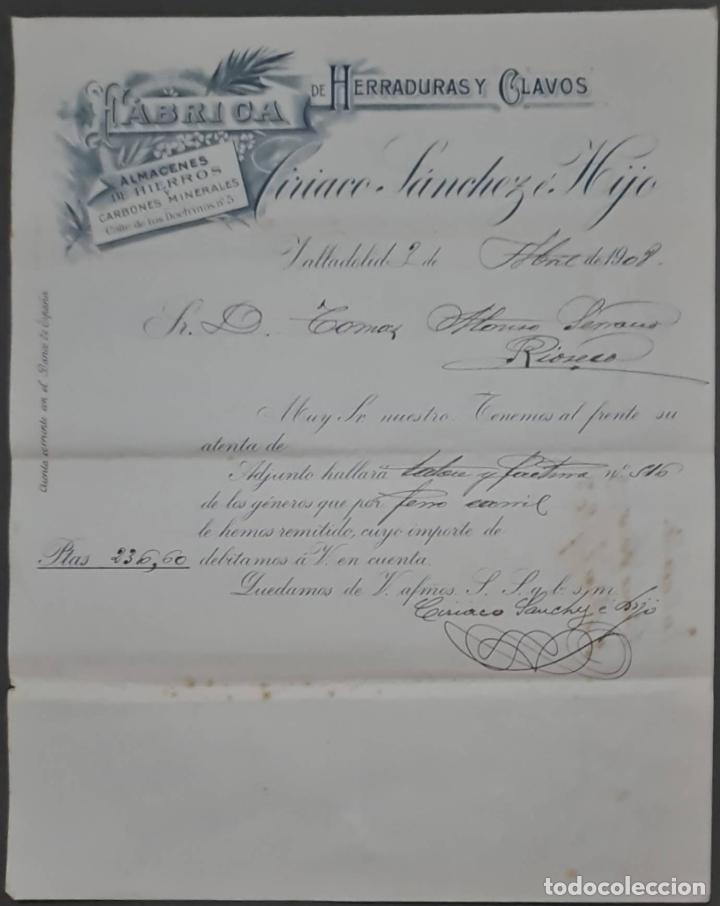 FÁBRICA DE HERRADURAS Y CLAVOS
ALMACENES
DE HIERROS
Y
CARBONES MINERALES
Calle de los Doctrinos nº 5
Ciriaco Sánchez é Hijo
Valladolid 2 de Abril de 1908.
Sr. D. Tomas Alonso Serrano
Rioseco
Muy Sr. nuestro: Tenemos al frente su
atenta de
Adjunto hallará talon y factura nº 516
de los géneros que por ferro carril
le hemos remitido, cuyo importe de
Ptas 236,60 debitamos á V. en cuenta.
Quedamos de V. afmos. S. S. q. b. s. m.
Ciriaco Sanchez é Hijo
Cuenta corriente en el Banco de España
todocoleccion